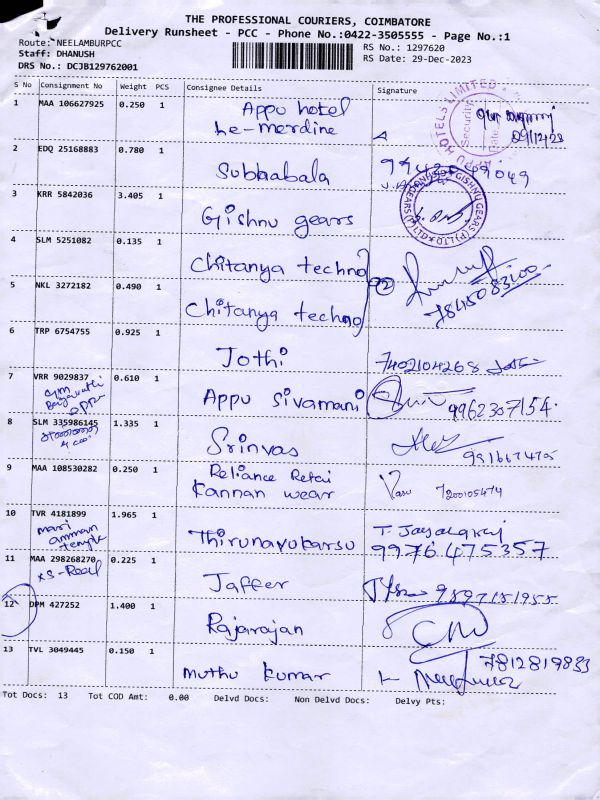 THE PROFESSIONAL COURIERS, COIMBATORE
Delivery Runsheet - PCC - Phone No.:0422-3505555 - Page No.:1
Route: NEELAMBURPCC
Staff: DHANUSH
DRS No.: DCJB129762001
RS No.: 1297620
RS Date: 29-Dec-2023
S No Consignment No Weight PCS Consignee Details Signature
1 MAA 106627925 0.250 1 Appu hotel
Le-merdine
APPU HOTELS LIMITED
Security
Date
2 EDQ 25168883 0.780 1 Subbabala
3 KRR 5842036 3.405 1 Gishnu gears
GISHNU GEARS (P) LTD
4 SLM 5251082 0.135 1 Chitanya techno
5 NKL 3272182 0.490 1 Chitanya techno
2
7845083200
6 TRP 6754755 0.925 1 Jothi 7402104268
7 VRR 9029837 0.610 1 Appu sivamani 9962307154
8 SLM 335986145 1.335 1 Srinvas
9 MAA 108530282 0.250 1 Reliance Retai
kannan wear
Vasu 7200105474
10 TVR 4181899 1.965 1 Thirunavukarsu
mari
amman
temple
9976475357
11 MAA 298268270 0.225 1 Jaffer
XS-Real
12 DPM 427252 1.400 1 Rajarajan
13 TVL 3049445 0.150 1 muthu kumar 7812819833
Tot Docs: 13 Tot COD Amt: 0.00 Delvd Docs: Non Delvd Docs: Delvy Pts: